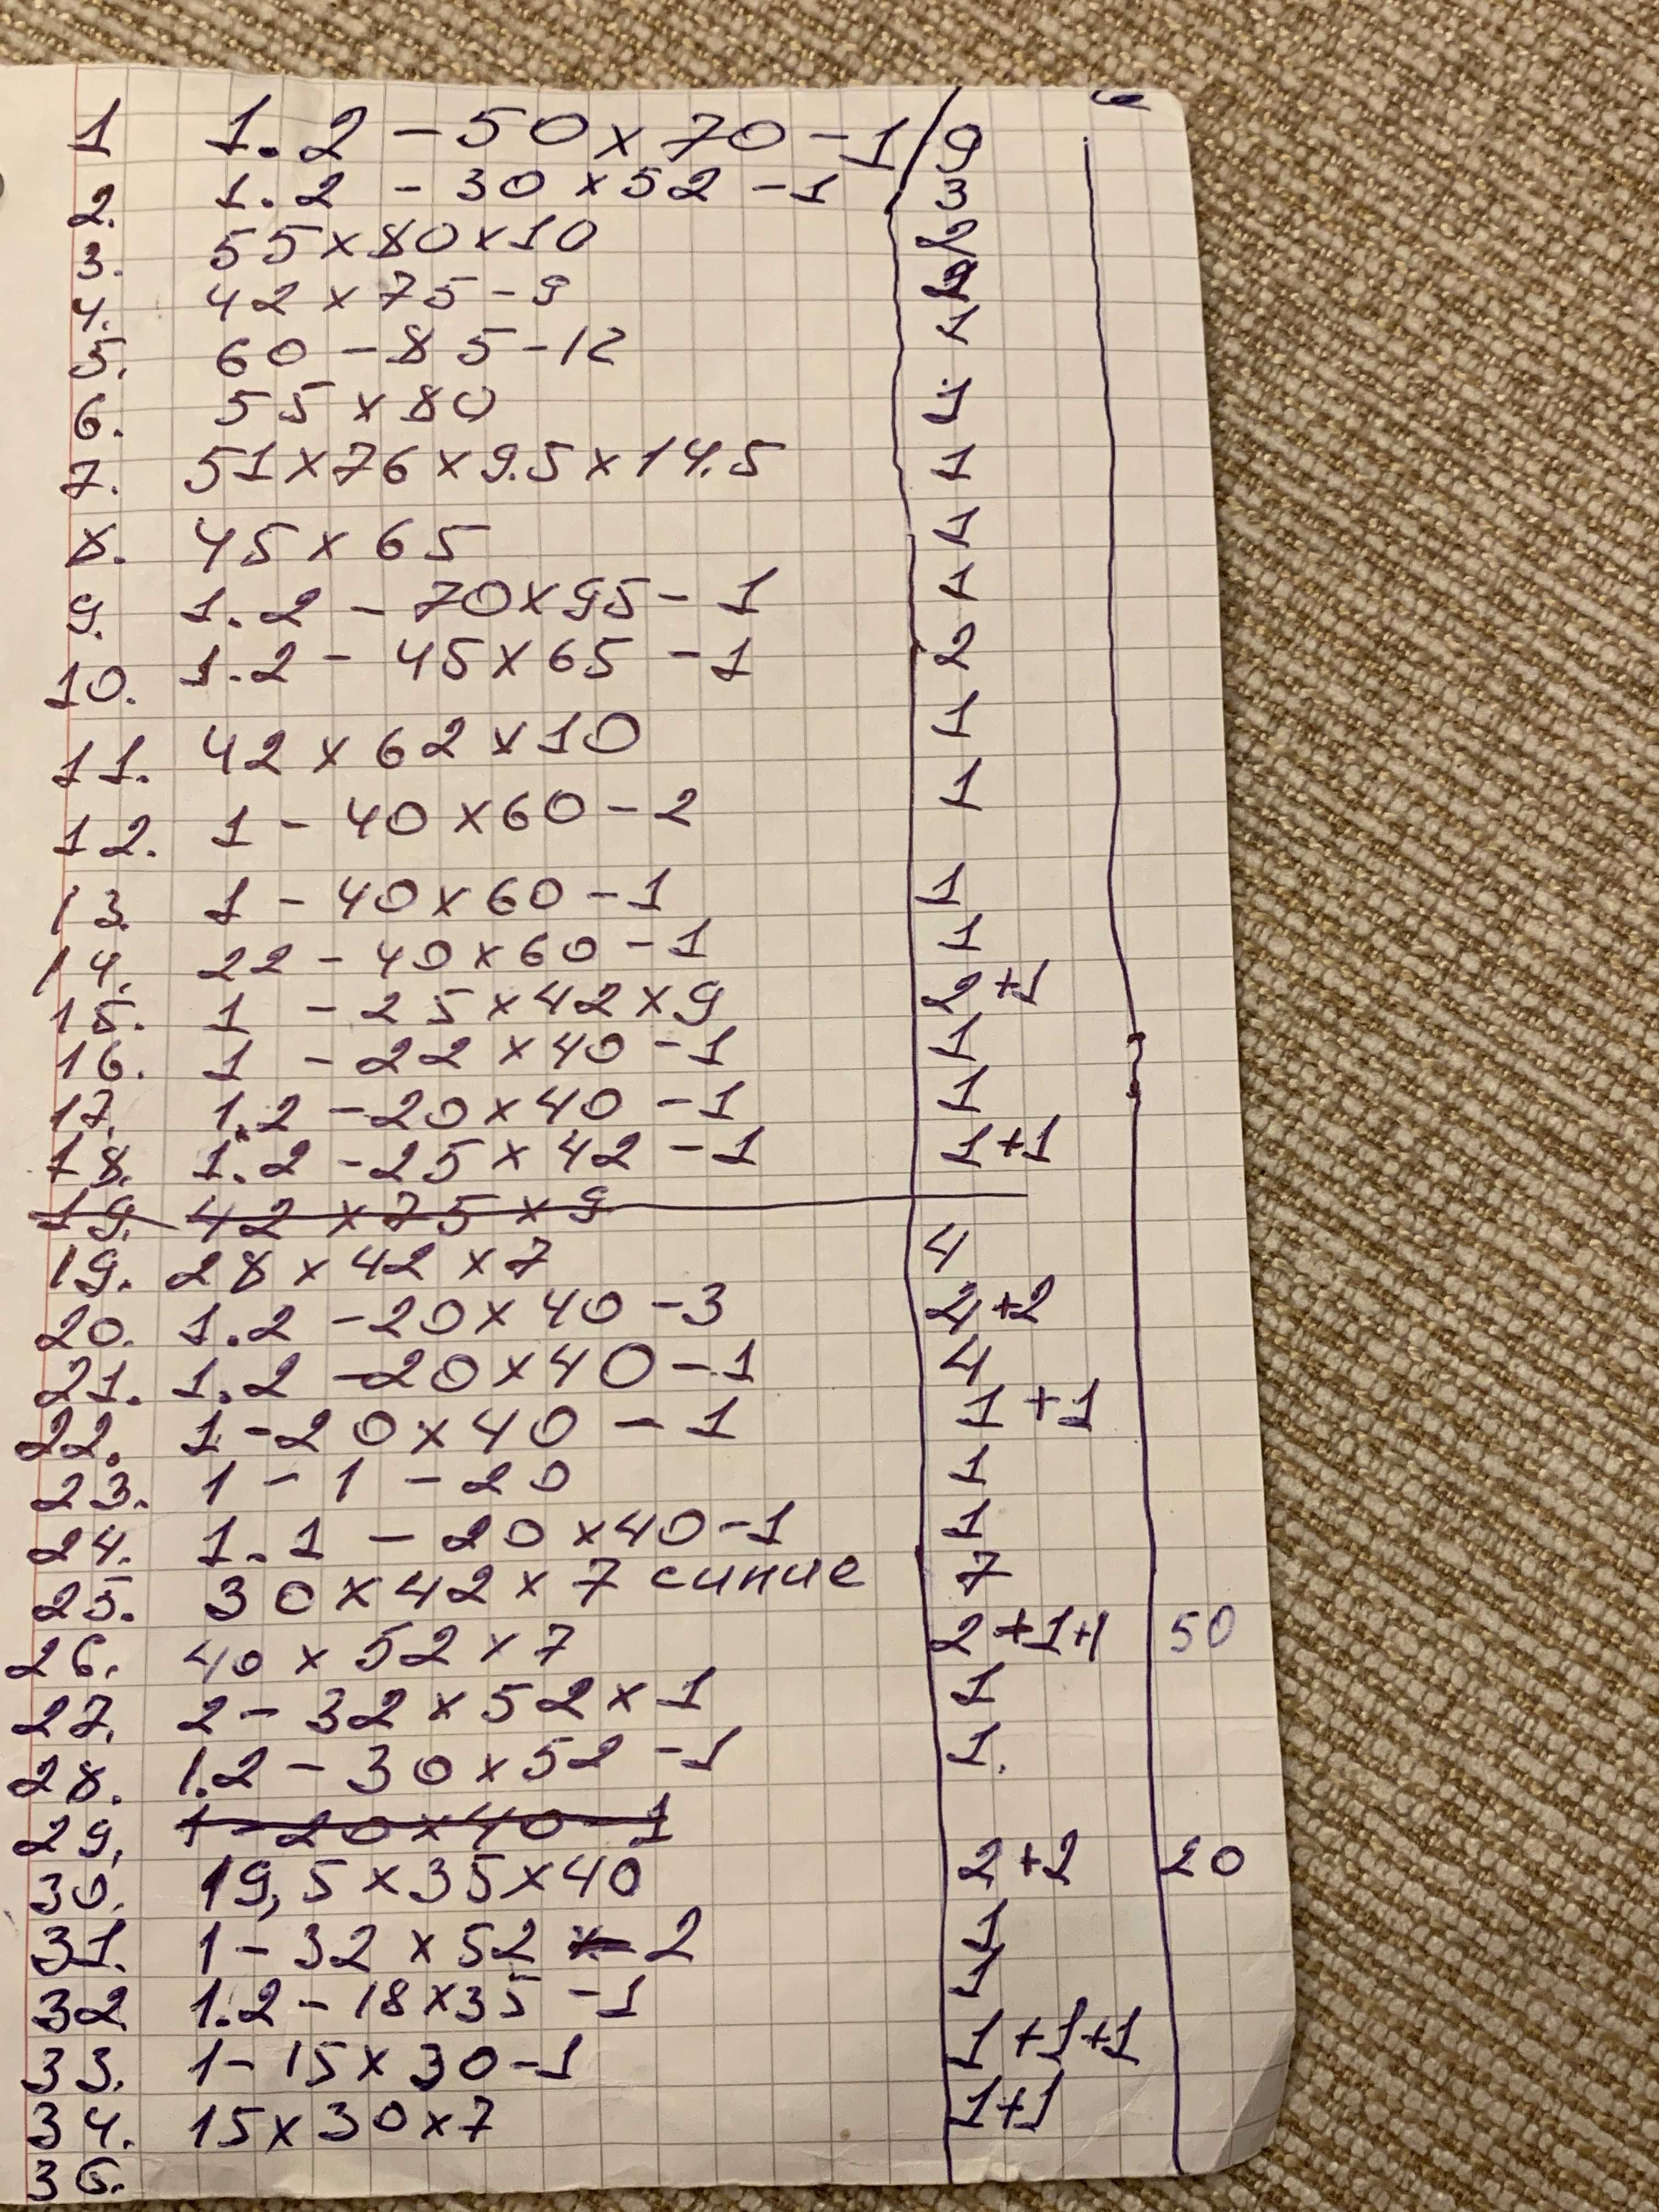 1 1.2 - 50 x 70 - 1 / 9
2. 1.2 - 30 x 52 - 1 3
3. 55 x 80 x 10 2
4. 42 x 75 - 9
5. 60 - 85 - 12 1
6. 55 x 80 1
7. 51 x 76 x 9.5 x 14.5 1
8. 45 x 65 1
9. 1.2 - 70 x 95 - 1 1
10. 1.2 - 45 x 65 - 1 2
11. 42 x 62 x 10 1
12. 1 - 40 x 60 - 2 1
13. 1 - 40 x 60 - 1 1
14. 22 - 40 x 60 - 1 1
15. 1 - 25 x 42 x 9 2 + 1
16. 1 - 22 x 40 - 1 1
17. 1.2 - 20 x 40 - 1 1
18. 1.2 - 25 x 42 - 1 1 + 1
19. 42 x 75 x 9
19. 28 x 42 x 7 4
20. 1.2 - 20 x 40 - 3 +2
21. 1.2 - 20 x 40 - 1 4
22. 1 - 20 x 40 - 1 1 + 1
23. 1 - 1 - 20 1
24. 1.1 - 20 x 40 - 1 1
25. 30 x 42 x 7 синие 7
26. 40 x 52 x 7 2 + 1 + 1 50
27. 2 - 32 x 52 x 1 1
28. 1.2 - 30 x 52 - 1 1.
29. 1 - 20 x 40 - 1
30. 19,5 x 35 x 40 2 + 2 20
31. 1 - 32 x 52 - 2 1
32 1.2 - 18 x 35 - 1 1
33. 1 - 15 x 30 - 1 1 + 1 + 1
34. 15 x 30 x 7 1 + 1
35.